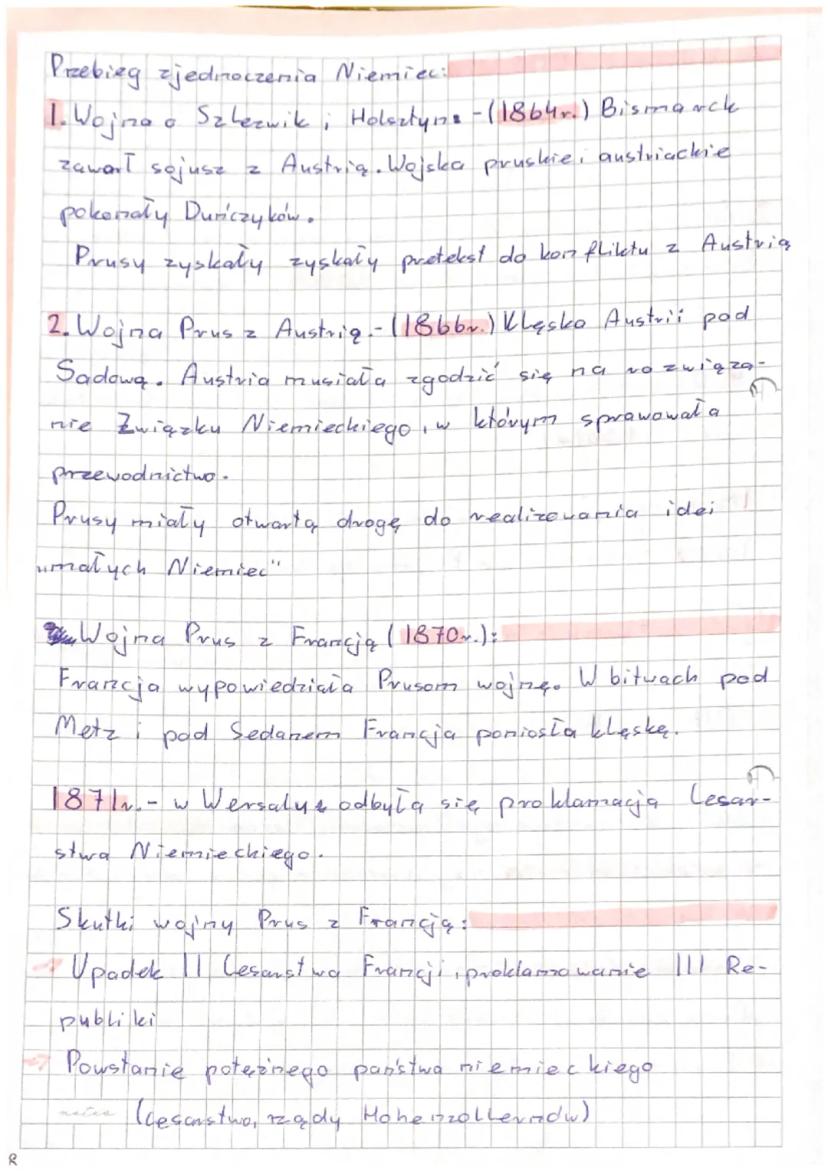 Przebieg zjednoczenia Niemiec:
1. Wojna o Szlezwik i Holsztyn - (1864r.) Bismarck
zawarł sojusz z Austrią. Wojska pruskie i austriackie
pokonały Duńczyków.
Prusy zyskały zyskały pretekst do konfliktu z Austrią
2. Wojna Prus z Austrią - (1866r.) Klęska Austrii pod
Sadową. Austria musiała zgodzić się na rozwiąza-
nie Związku Niemieckiego, w którym sprawowała
przewodnictwo.
Prusy miały otwartą drogę do realizowania idei
"małych Niemiec"
Wojna Prus z Francją (1870r.):
Francja wypowiedziała Prusom wojnę. W bitwach pod
Metz i pod Sedanem Francja poniosła klęskę.
1871r. - w Wersalu odbyła się proklamacja Cesar-
stwa Niemieckiego.
Skutki wojny Prus z Francją:
→ Upadek II Cesarstwa Francji, proklamowanie III Re-
publiki
→ Powstanie potężnego państwa niemieckiego
notes (cesarstwo, rządy Hohenzollernów)
R